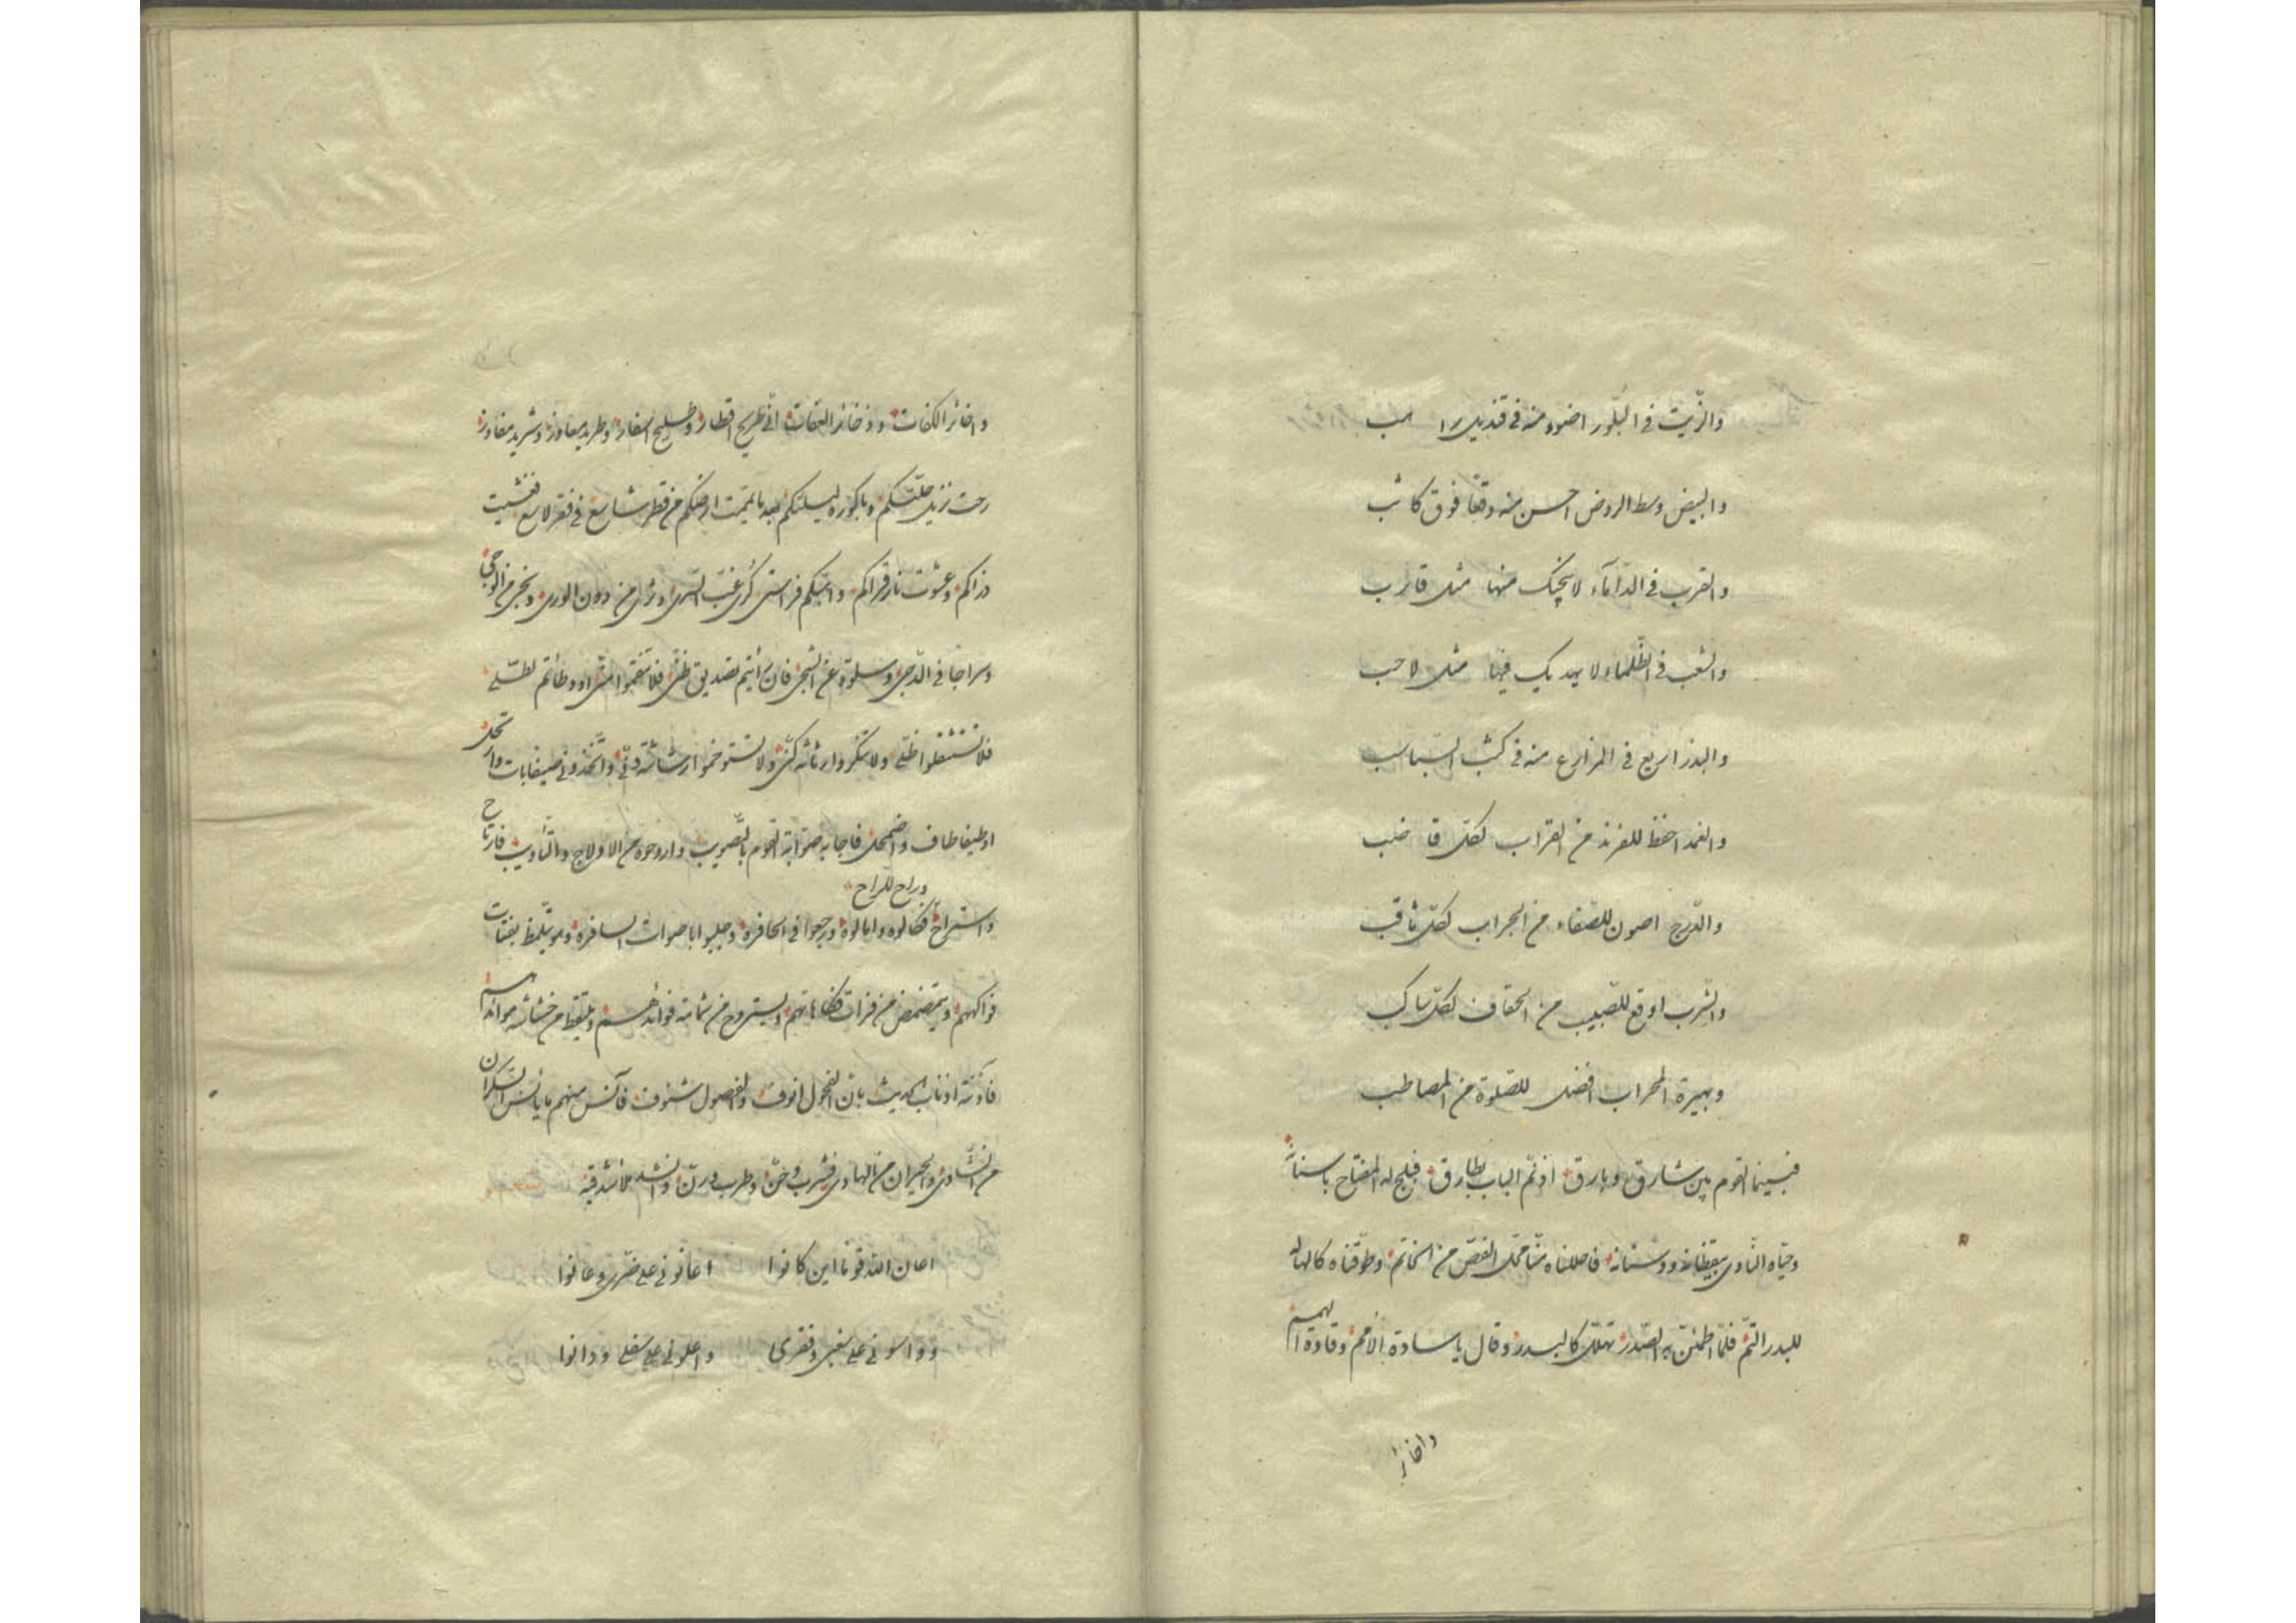 والزّيت في البلّور اضوء منه في قنديل راهب
والبيض وسط الروض احسن منه وقعًا فوق كاثب
والقرب في الدّأماء لا ينجيك منها مثل قارب
والشعب في الظّلماء لا يهديك فيها مثل لاحب
والبذر اريع في المزارع منه في كثب السّباسب
والغمد احفظ للفرند من القراب لكلّ قاضب
والدّرج اصون للصّفاء من الجراب لكلّ ثاقب
والشّرب اوقع للصّبيب من الحقاف لكلّ ساكب
وبهيرة المحراب افضل للصّلوة من المصاطب
فبينما القوم بين شارق وبارق اذ نمّ الباب بطارق فبلج له المفتاح باسنانه
وحيّاه النّادي بيقظانه ووسنانه فاحللناه منّا محلّ الفصّ من الخاتم وطوّقناه كالهاله
للبدر التمّ فلمّا اطمئنّ به الصّدر تهلّل كالبدر وقال يا سادة الامم وقادة الهمم
واخائر
واخائر الكفات وذخائر العفات انّي طريح اقطار وطليح اسفار وطريد معاوز وشريد مفاوز
رحت نزيل حلّتكم وباكورة ليلتكم بعد ما يمّمت ارضكم من قطر شاسع في فقر لاسع فغشيت
ذراكم وعشوت نار قراكم وانبئكم فراستي كرى غبّ السّرى وذرى من دون الورى ونجى من الوجى
وسراجًا في الدّجى وسلوة عن الشجى فان رأيتم تصديق ظنّي فلا تنقموا منّي او وطأتم لطلّي
فلا تستثقلوا ظلّي ولا تنكروا رثاثة كنّي ولا تستوخموا رشاشة دنّي واتّخذوني ضيفا بات وارتحل
او طيفا طاف واضمحل فاجابه صوّابة القوم بالتّصويب واروحوه من الاولاج والتأويب فارتاح
وراح للراح
واستراح فكالوه وامالوه ورجعوا في الحافرة وجلبوا باصوات السافرة وهو يتلمظ بفتات
فواكههم ويتمضمض من فرات فكاهاتهم ويستروح من شمامة فوائدهم ويلتقط من خشاشة موائدهم
فآذنته اذناب الحديث بانّ الفحول انوف والفصول شنوف فآنس منهم ما يأنس السّكران
من النشاوى والحيران من الهادى فشرب وخنّ وطرب ورنّ وانشد ملأ شدقيه
اعان اللّه قوما اين كانوا اعانوني على ضرّي وعانوا
وواسوني على سغبي وفقري واعلوني على سفلي ودانوا